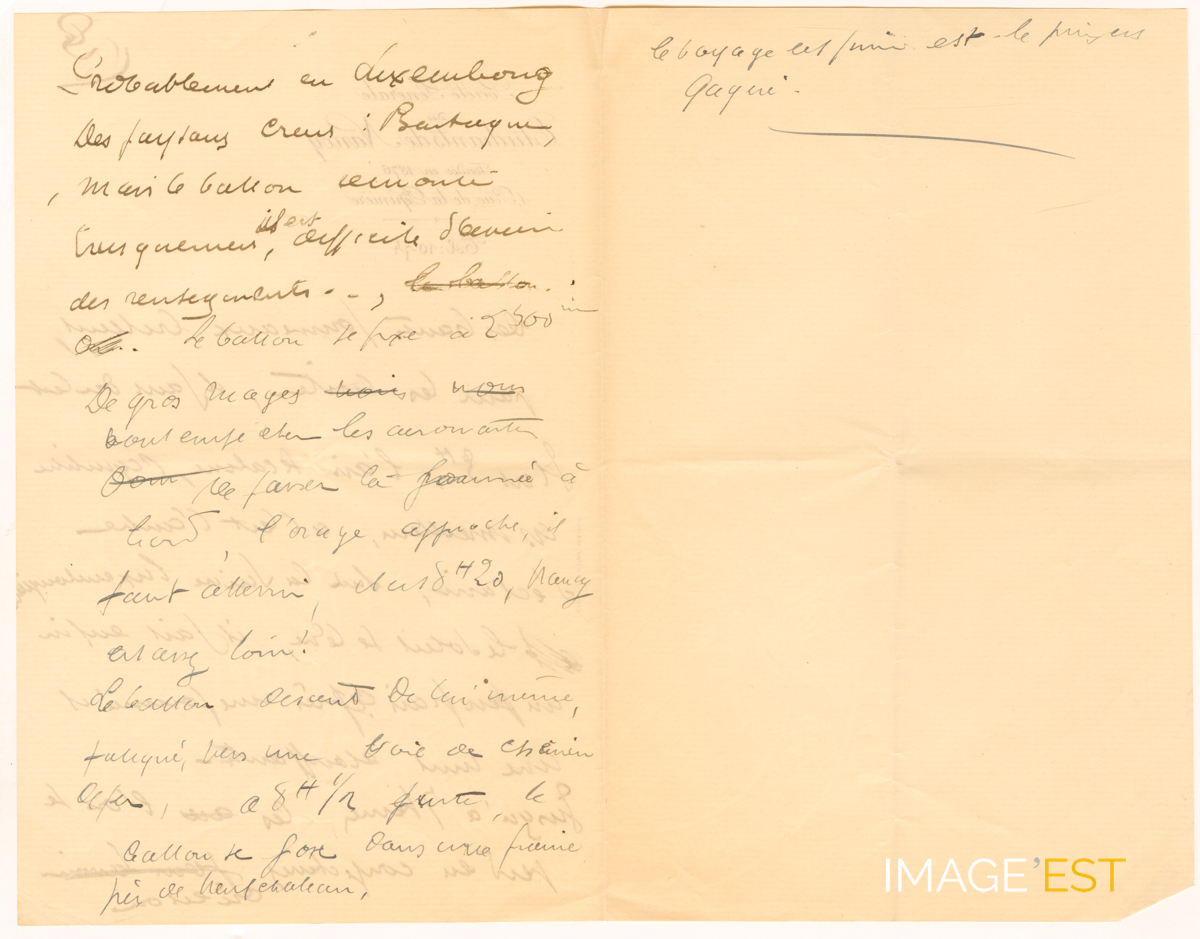 Probablement en Luxembourg
Des paysans crens : Bastogne,
, mais le ballon remonte
brusquement, il est difficile d'avoir
des renseignements . . , le ballon.
Le ballon se fixe à 2500 m
De gros nuages nous
vont empecher les aeronautes
de passer la journée à
bord, l'orage approche, il
faut atterrir, il est 8H20, Nancy
est assez loin!
Le ballon descend de lui même,
fatigué, vers une voie de chemin
de fer, a 8H 1/2 juste, le
ballon se pose dans une prairie
près de Neufchateau,
le voyage est fini est le
gagné.
IMAGE'EST